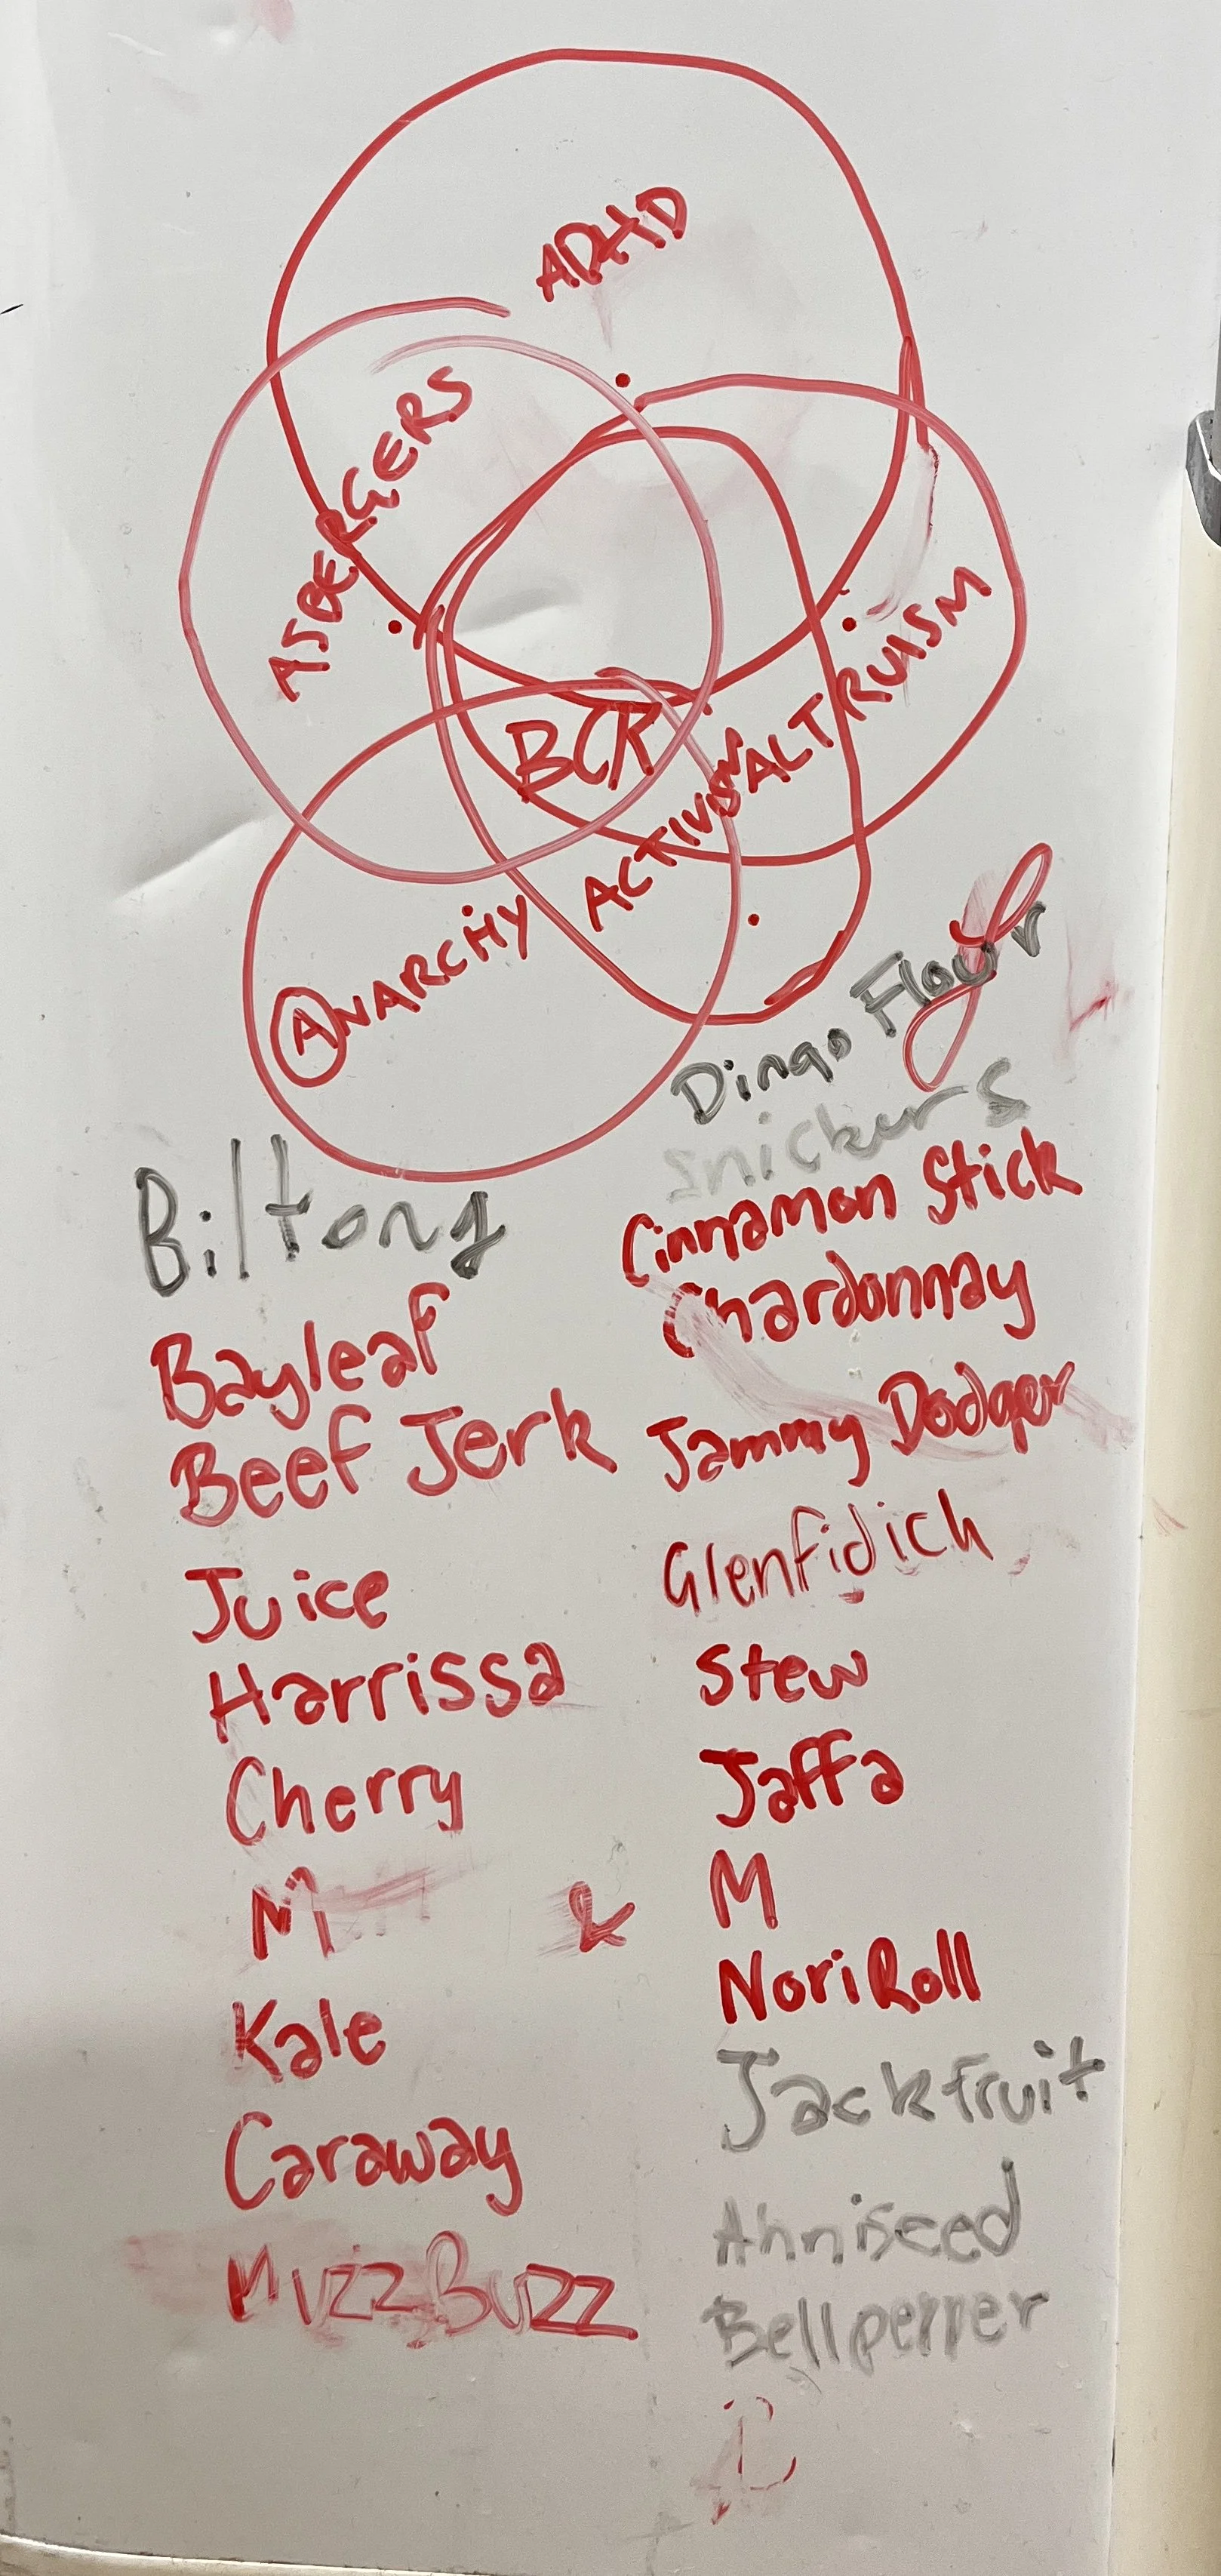 ADHD
ASBERGERS
ALTRUISM
BCK
ACTIVISM
ANARCHY
Dingo Flour
Snickers
Biltong
Cinnamon Stick
Chardonnay
Bayleaf
Jammy Dodger
Beef Jerk
Glenfidich
Juice
Stew
Harrissa
Jaffa
Cherry
M & M
Nori Roll
Kale
Jackfruit
Caraway
Anniseed
MuzzBuzz
Bellpepper